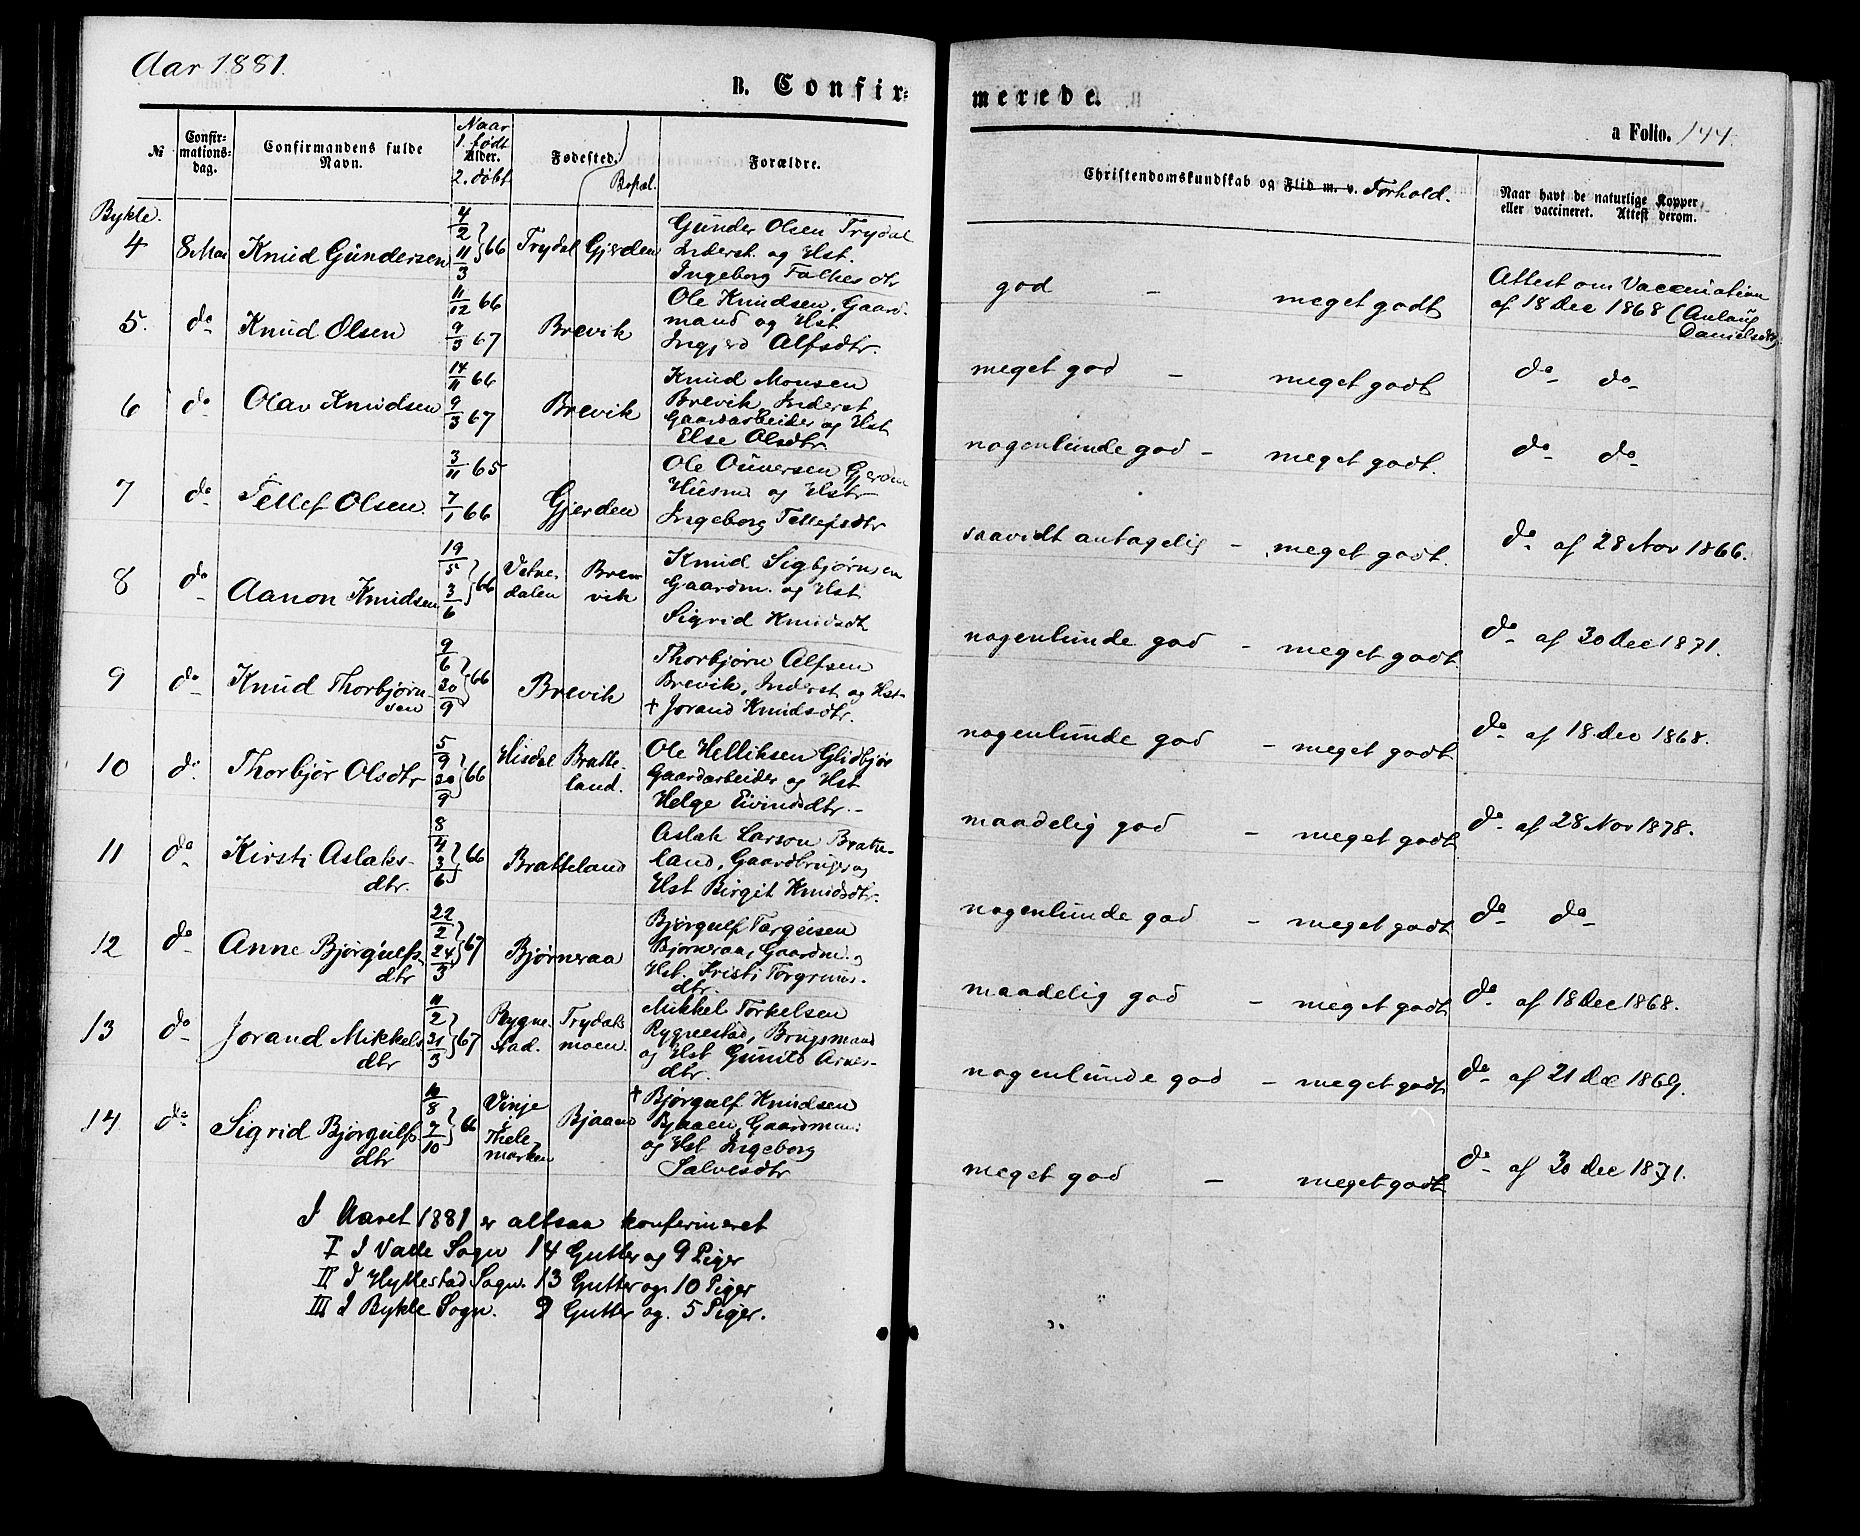 Aar 1881.
B. Confir-
merede.
a Folio. 144.
№
Confir-
mations-
dag.
Confirmandens fulde
Navn.
Naar
1. født
Alder.
2. døbt
Fødested.
Bopæl.
Forældre.
Christendomskundskab og Flid m. v. Forhold.
Naar havt de naturlige Kopper
eller vaccineret. Attest derom.
Bykle.
4 8 Mai Knud Gundersen 4/2 11/3 66 Trydal Gjerden
Gunder Olsen Trydal
Inderst. og Hst.
Ingeborg Falkesdtr
god - meget godt
Attest om Vaccination
af 18 Dec 1868 (Anlaug
Danielsdtr)
5. do Knud Olsen 11/12 66 9/3 67 Brevik
Ole Knudsen, Gaard-
mand og Hst
Ingjerd Alfsdtr.
meget god - meget godt do do
6 do Olav Knudsen 14/11 66 9/3 67 Brevik
Knud Monsen
Brevik Inderst
Gaardarbeider og Hst
Else Olsdtr
nogenlunde god - meget godt. do do
7 do Tellef Olsen. 3/11 65 7/1 66 Gjerden
Ole Ounersen Gjerden
Husmd og Hstr
Ingeborg Tellefsdtr
saavidt antagelig - meget godt. do af 28 Nov 1866.
8 do Aanon Knudsen 19/5 3/6 66
Vetne-
dalen
Bre-
vik
Knud Sigbjørnsen
Gaardm. og Hst
Sigrid Knudsdt
nogenlunde god - meget godt do af 30 Dec 1871.
9 do Knud Thorbjørn-
sen
9/6 30/9 66 Brevik
Thorbjørn Alfsen
Brevik, Inderst og Hst
+ Jorand Knudsdtr.
nogenlunde god - meget godt do af 18 Dec 1868.
10 do Thorbjør Olsdtr 5/9 30/9 66 Hisdal
Bratte-
land.
Ole Helliksen Glidbjør
Gaardarbeider og Hst
Helge Eivindsdtr.
maadelig god - meget godt do af 28 Nov 1878.
11 do Kirsti Aslaks-
dtr.
8/4 3/6 66 Bratteland
Aslak Larson Bratte-
land, Gaardbruger og
Hst Birgit Knudsdtr.
nogenlunde god - meget godt do do
12 do Anne Bjørgulfs-
dtr
22/2 24/3 67 Bjørnraa
Bjørgulf Targeisen
Bjørneraa, Gaardm. og
Hst. Kristi Torgrims-
dtr.
maadelig god - meget godt do af 18 Dec 1868.
13 do Jorand Mikkels
dtr
11/2 31/3 67
Rygne-
stad.
Trydals
moen.
Mikkel Torkelsen
Rygnestad, Brugsmand
og Hst Gunild Arnes-
dtr.
nogenlunde god - meget godt do af 21 Dec 1869.
14 do Sigrid Bjørgulfs
dtr
10/8 7/10 66
Vinje
i
Thele-
marken
Bjaaen
+ Bjørgulf Knudsen
Bjaaen, Gaardmand
og Hst Ingeborg
Salvesdtr
meget god - meget godt do af 30 Dec 1871.
I Aaret 1881 er altsaa konfirmeret
I I Valle Sogn 14 Gutter og 9 Piger
II I Hyllestad Sogn. 13 Gutter og 10 Piger
III I Bykle Sogn. 9 Gutter og 5 Piger.